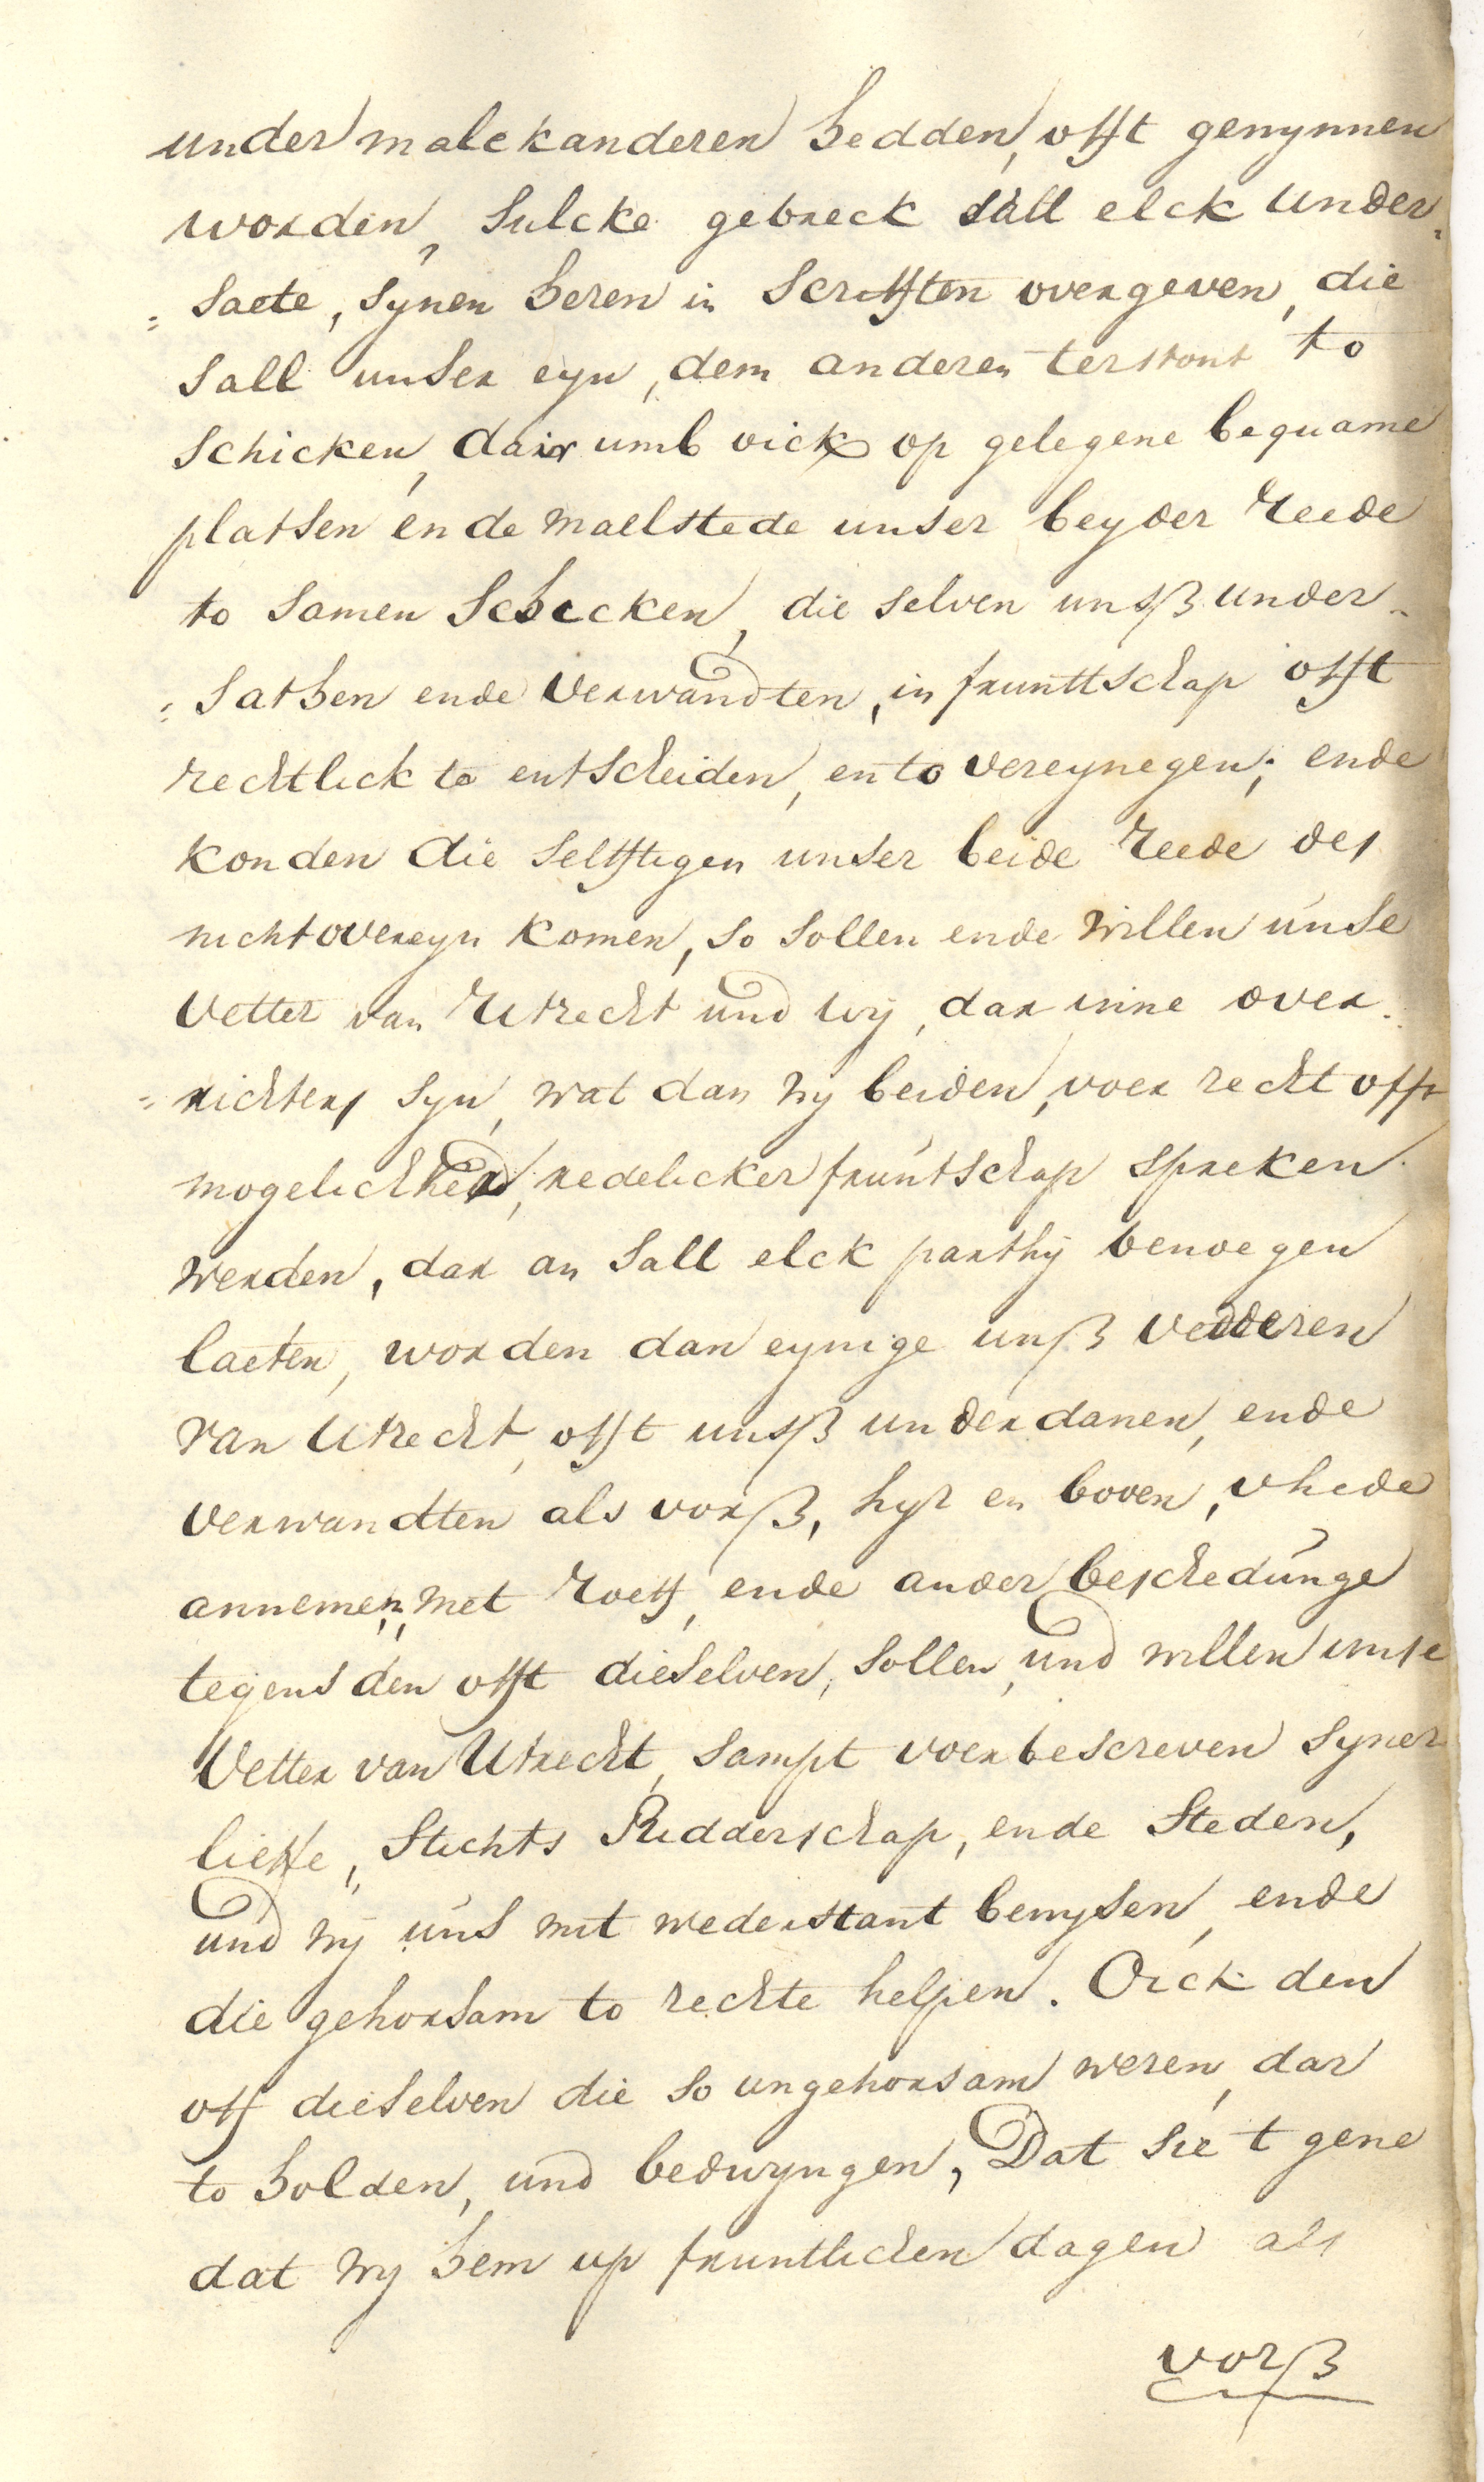 under malckanderen hedden, offt genynnen
worden, sulcke gebreck sall elck under-
=saete, synen heren in scrifften overgeven, die
sall unser eyn, dem anderen terstont to
schicken, dair umb oick op gelegene bequame
platsen ende maelstede unser beyder reede
to samen schicken, die selven unsß under-
=sathen ende verwandten, in frunttschap offt
rechtlick to entscheiden, en to vereynegen; ende
konden die selfftigen unser beide reede des
nicht overeyn komen, so sollen ende willen unse
Vetter van Utrecht und wij, dar inne over-
=richters syn, wat dan wij beiden, voer recht offt
mogelickheid, redelicker fruntschap spreken
werden, dar an sall elck parthij benoegen
laeten, worden dan eynige unß vedderen
van Utrecht, offt unsß underdanen, ende
verwandten als vorß, hyr en boven, vhede
annemen, met roeff, ende ander beschedunge
tegens den offt dieselven, sollen, und willen unse
Vetter van Utrecht, sampt voerbescreven syner
lieffe, Stichts Ridderschap, ende Steden,
und wij uns mit wederstant bewysen, ende
die gehorsam to rechte helpen. Oick den
off dieselven die so ungehorsam weren, dar
to holden, und bedwyngen, Dat sie t gene
dat wij hem up fruntlicken dagen als
vorß